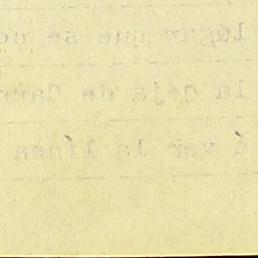 lugar que se
la ceja de
á ver la línea